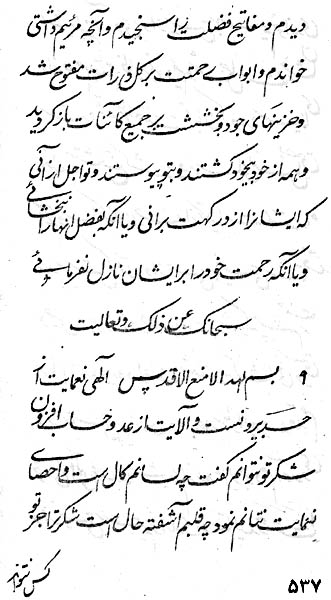 دیدم و مفاتیح فضلت را سنجیدم و آنچه مرئیم داشتی
خواندم و ابواب رحمتت بر کل ذرات مفتوح شد
و خزینهای جود و بخششت بر جمیع کائنات باز گردید
و همه از خود بیخود گشتند و بتو پیوستند و تو اجل از آنی
که ایشانرا از درگهت برانی و یا آنکه بفضل انها را نبخشائی
و یا آنکه رحمت خود را بر ایشان نازل نفرمائی
سبحانک عن ذلک و تعالیت
۹ بسم الله الامنع الاقدس الهی نعمایت از
حد بیرونست و آلایت از عد و حساب افزون
شکر تو نتوانم گفت چه لسانم کال است و احصای
نعمایت نتانم نمود چه قلبم آشفته حال است شکر ترا جز تو
کس نتواند
۵۳۷